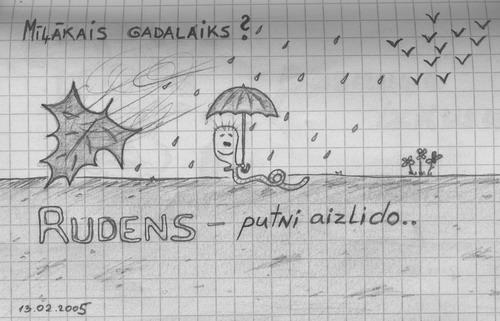 MĪĻĀKAIS GADALAIKS?
RUDENS – putni aizlido..
13.02.2005